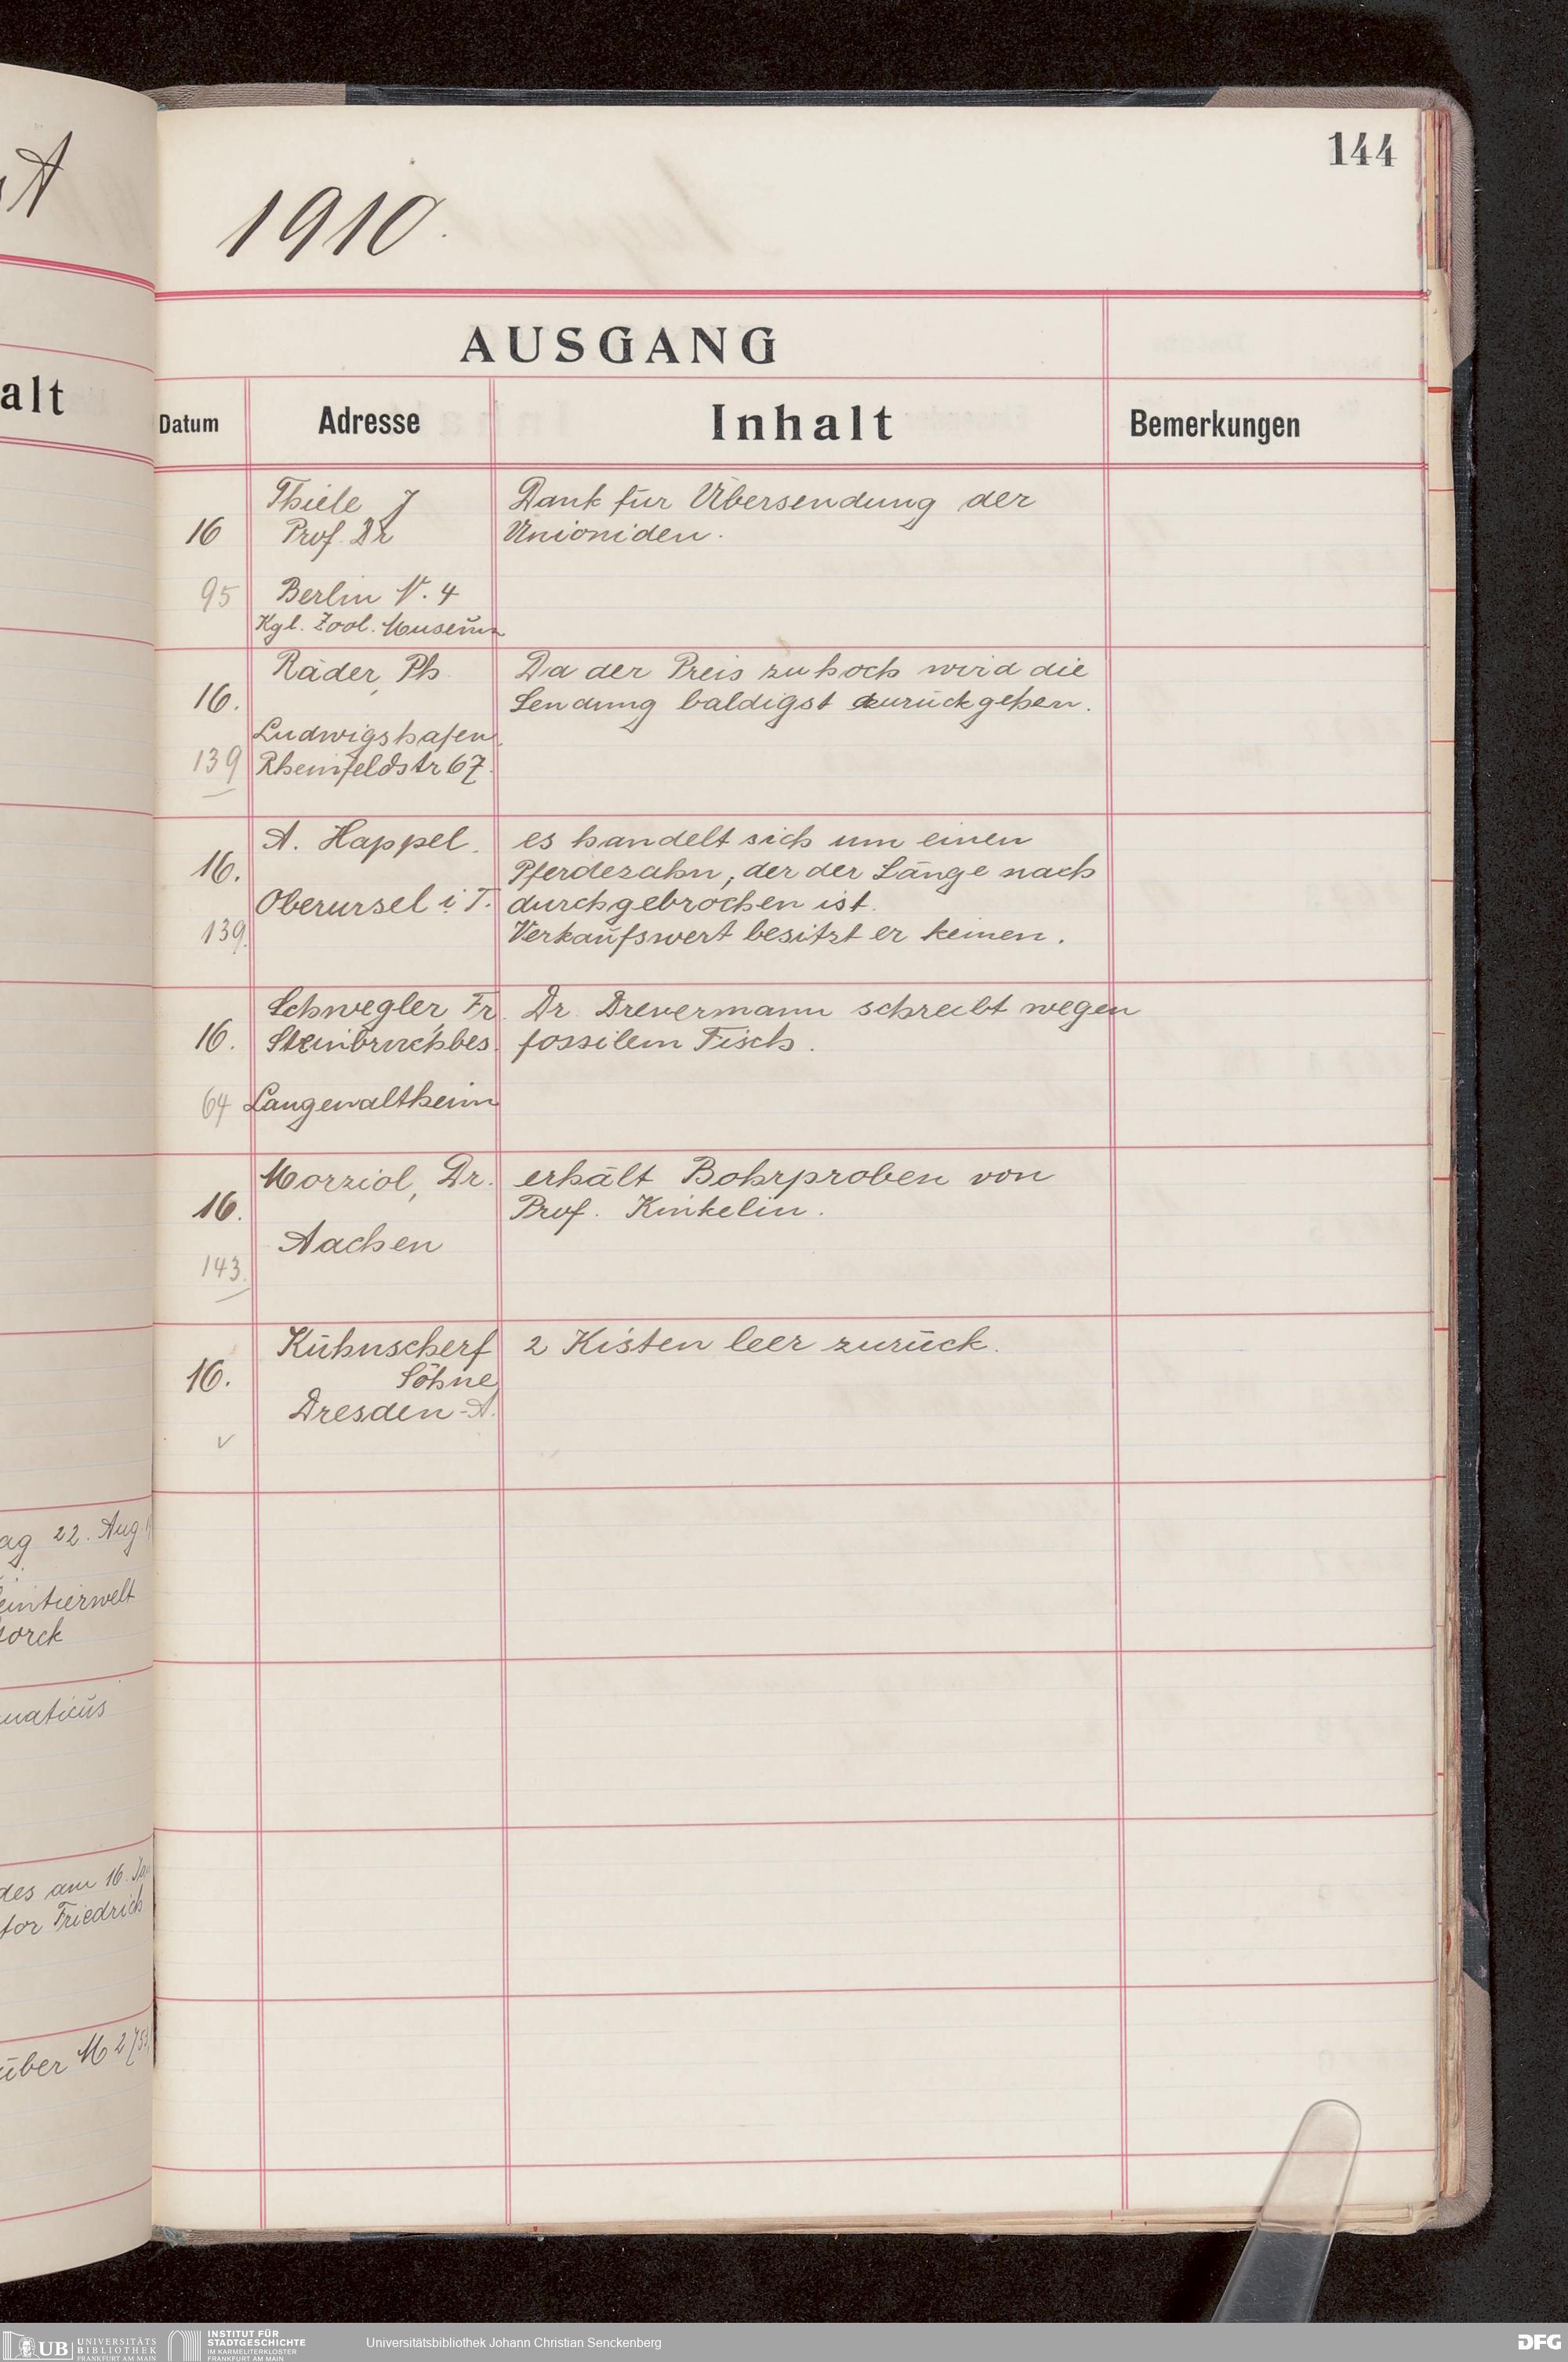 144
1910.
AUSGANG
Datum
Adresse
Inhalt
Bemerkungen
16
95
Thiele J
Prof. Dr
Berlin N. 4
Kgl. Zool. Museum
Dank für Übersendung der
Unioniden.
16.
139
Räder, Ph.
Ludwigshafen
Rheinfeldstr 67.
Da der Preis zu hoch wird die
Sendung baldigst zurückgehen.
16.
139.
A. Happel.
Oberursel i. T.
es handelt sich um einen
Pferdezahn, der der Länge nach
durchgebrochen ist.
Verkaufswert besitzt er keinen.
16.
64
Schwegler, Fr.
Steinbruchbes.
Langenaltheim
Dr. Drevermann schreibt wegen
fossilem Fisch.
16.
143.
Morziol, Dr.
Aachen
erhält Bohrproben von
Prof. Kinkelin.
16.
Kühnscherf
Söhne
Dresden-A.
2 Kisten leer zurück.
alt
ag 22. Aug.
eintierwelt
orck
uaticus
des am 16. Ja
for Friedrich
über M 275
UB UNIVERSITÄTS
BIBLIOTHEK
FRANKFURT AM MAIN
INSTITUT FÜR
STADTGESCHICHTE
IM KARMELITERKLOSTER
FRANKFURT AM MAIN
Universitätsbibliothek Johann Christian Senckenberg
DFG